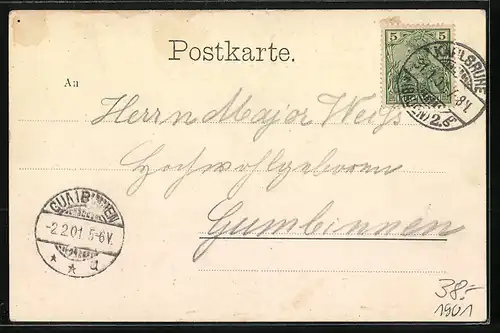 Postkarte.
5 5
KARLSRUHE
(BADEN) 2.
An
Herrn Major Weiß
Hochwohlgeboren
Gumbinnen
GUMBINNEN
-2.2.01 5-6V.
* * a
38.-
1901